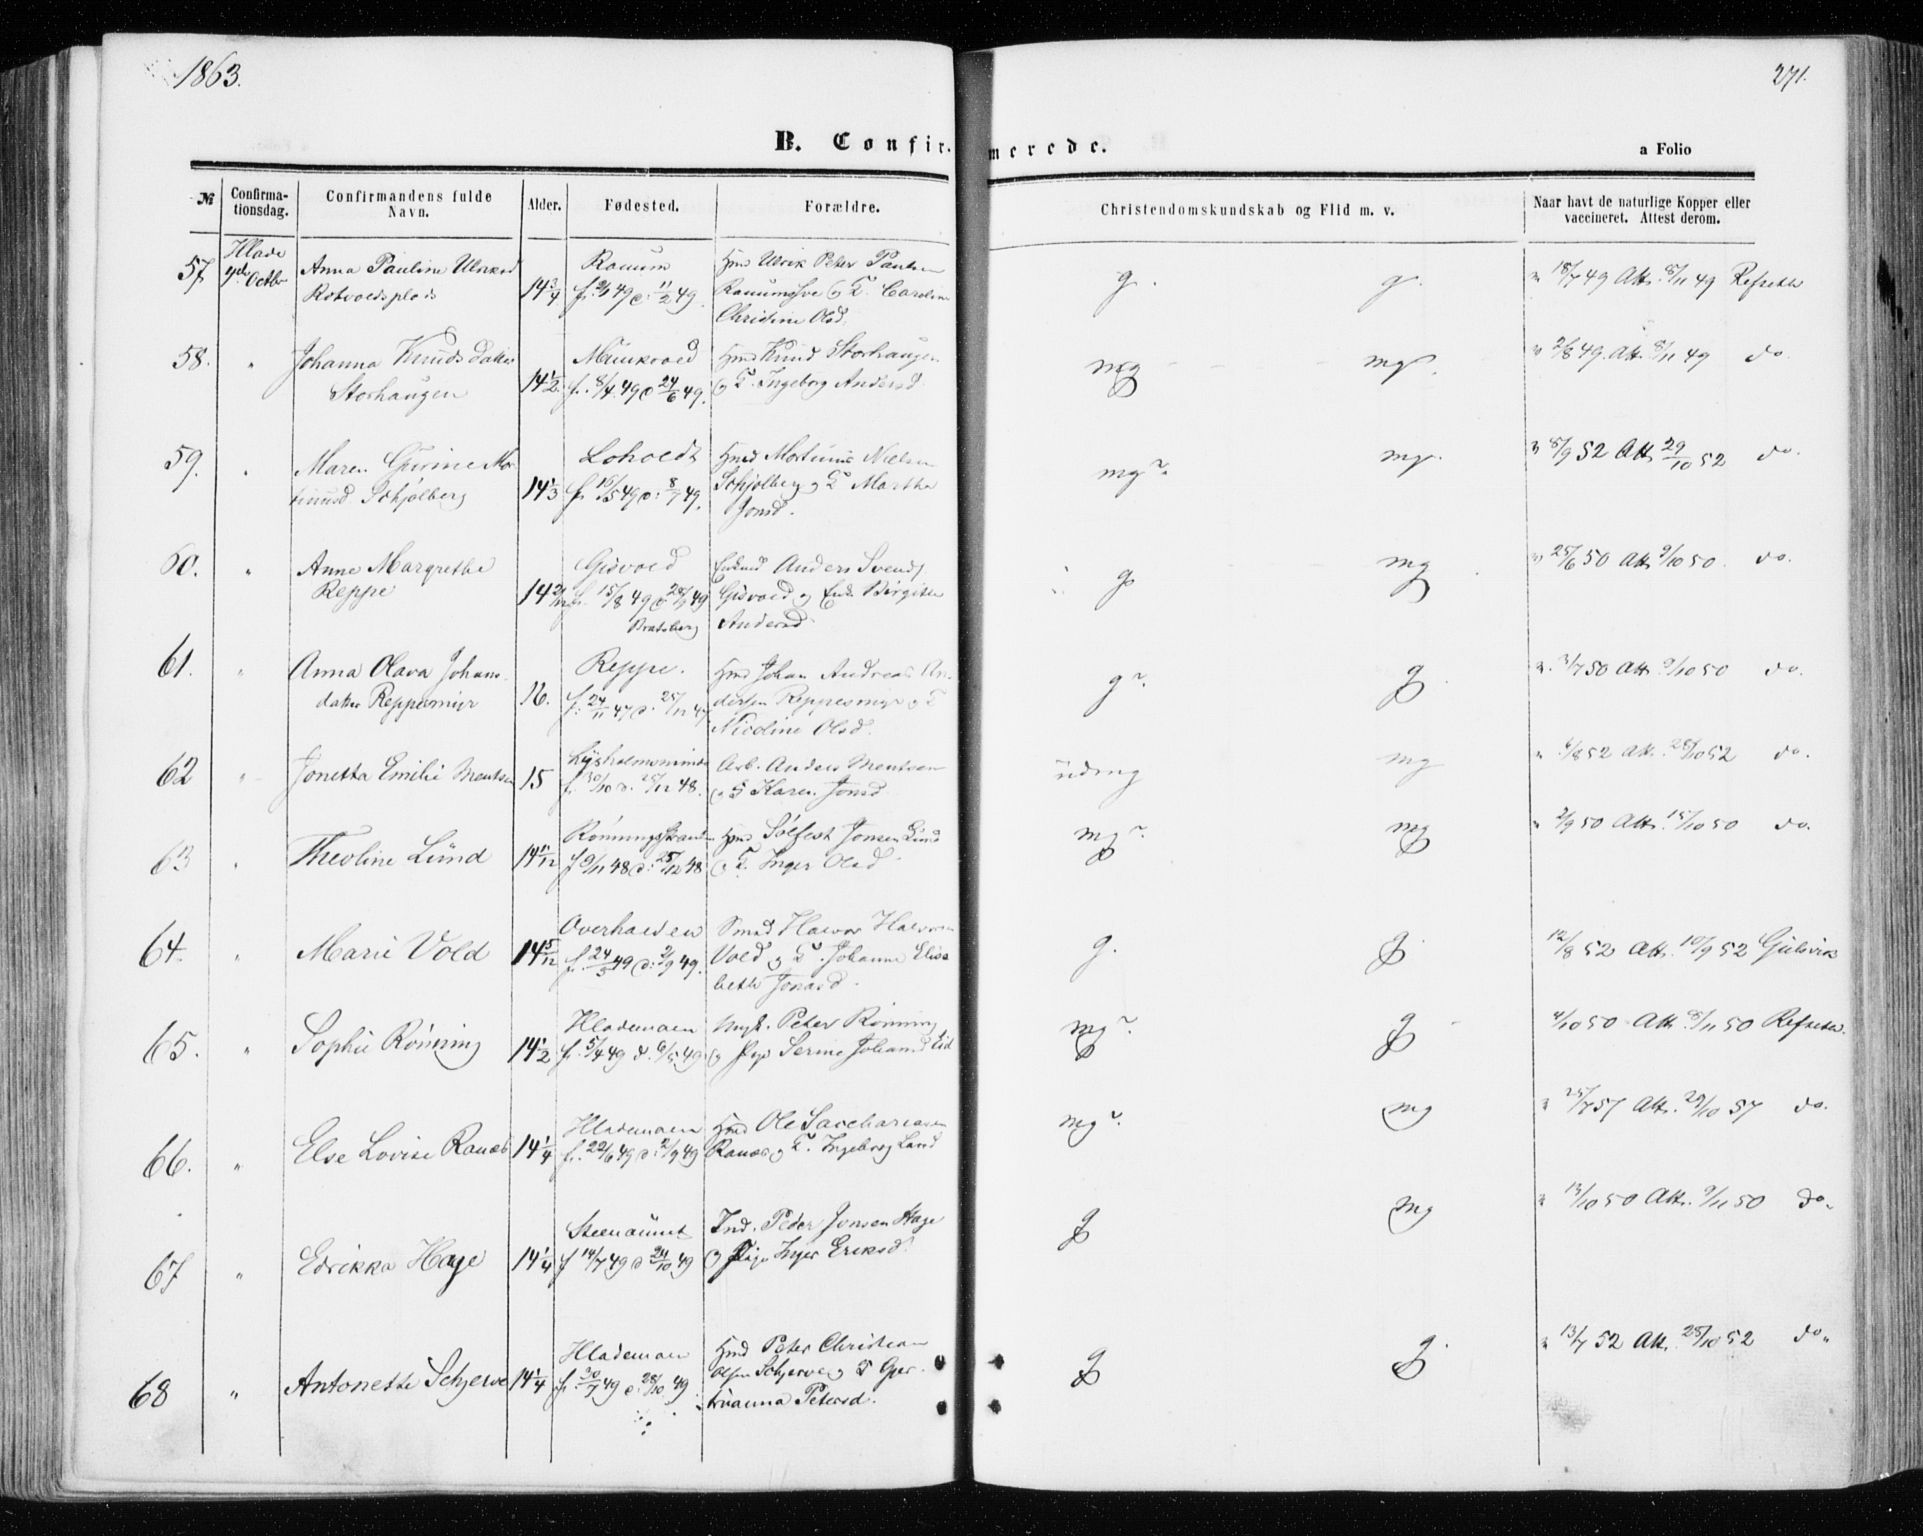 1863.
271.
B. Confir-
merede.
a Folio
№
Confirma-
tionsdag.
Confirmandens fulde
Navn.
Alder.
Fødested.
Forældre.
Christendomskundskab og Flid m. v.
Naar havt de naturlige Kopper eller
vaccineret. Attest derom.
57
Hlade
4de Octbr
Anna Pauline Ulriksd
Rotvoldsplads
14 3/4
Ranum
f. 2/1 49 d: 11/2 49.
Hmd Ulrik Peter Paulsen
Ranumsve og K. Caroline
Christine Olsd.
g.
g.
v 18/7 49 Att. 8/11 49 Refseth
58.
"
Johanna Knudsdatter
Storhaugen
14 1/2
Munkvold
f. 8/4 49 d 24/6 49.
Hmd Knud Storhaugen
og K. Ingeborg Andersd.
mg
mg.
v 2/8 49. Att. 8/11 49 do.
59.
"
Maren Gurine Mor
tinusd Schjølberg
14 1/3
Loholdt
f. 16/5 49 d: 8/7 49.
Hmd Mortinus Nielsen
Schjølberg og K Martha
Jonsd.
mg?
mg.
v 8/9 52 Att 29/10 52 do.
60.
"
Anne Margrethe
Reppe
14
Gidvold
15/8 49
Bratsberg
Anders Svends
Gidvold og Birgitte
Andersd
g
mg
v 25/6 50 Att. 9/10 50. do.
61.
"
Anna Olava Johans
datter Reppemyr
16.
Reppe.
f. 24/11 47 d. 25/12 47
Hmd Johan Andreas An
dersen Reppesmyr og K
Nicoline Olsd.
g?
g
v. 3/7 50 Att. 9/10 50 do.
62
"
Jonetta Emilie Mentsen
15
Lysholmsminde
f. 30/10 d. 25/12 48.
Arb. Anders Mentsen
og K Karen Jonsd
udmg
mg
v. 4/8 52 Att. 28/10 52 do.
63
"
Theoline Lund
14 11/12
f 9/11 48 d: 25/12 48
Hmd Solfest Jonsen Lund
og K. Inger Olsd
mg?
mg
v 2/9 50 Att. 15/10 50 do.
64.
"
Marie Vold
14 5/12
Overhalden
f. 24/5 49 d: 2/9 49.
Smed Halvor Halvorsen
Vold og K. Johanne Elisa
beth Jonasd.
g.
g
12/8 52 Att. 10/9 52 Gulsvik
65.
"
Sophie Rønning
14 1/2
Hlademoen
f. 5/4 49 d. 6/5 49
Ungk. Peter Rønning
og Pige Serine Johansd Lid
mg?
g
4/10 50 Att. 8/11 50 Refseth.
66.
"
Else Lovise Ranæs
14 1/4
Hlademoen
f. 22/6 49 d: 2/9 49
Hmd Ole Sacchariasen
Ranæs og K. Ingeborg Larsd
mg?
mg
v 25/7 57 Att. 29/10 57 do.
67
"
Edrikka Hage
14 1/4
Steenaunet
f 14/7 49 d 24/10 49
Ind. Peder Jonsen Hage
og Pige Inger Eriksd.
g
mg
v 13/10 50 Att. 9/11 50 do.
68
"
Antonette Schjerve
14 1/4
Hlademoen
f. 30/7 49 d. 28/10 49
Hmd Peter Christian
Olsen Schjerve og K Gjer
truanna Petersd.
g
g.
v 13/7 52 Att. 28/10 52 do.